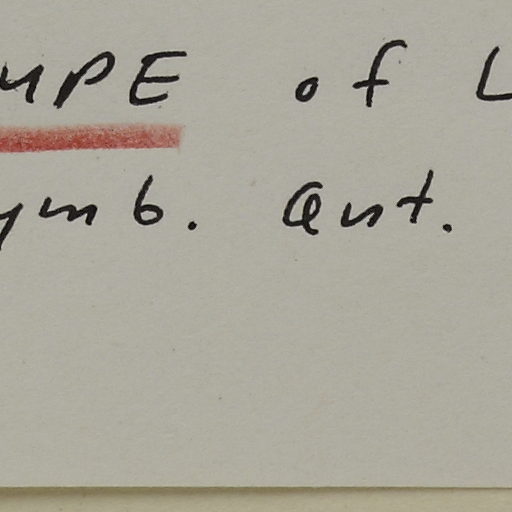 MPE of L
ymb. Ant.